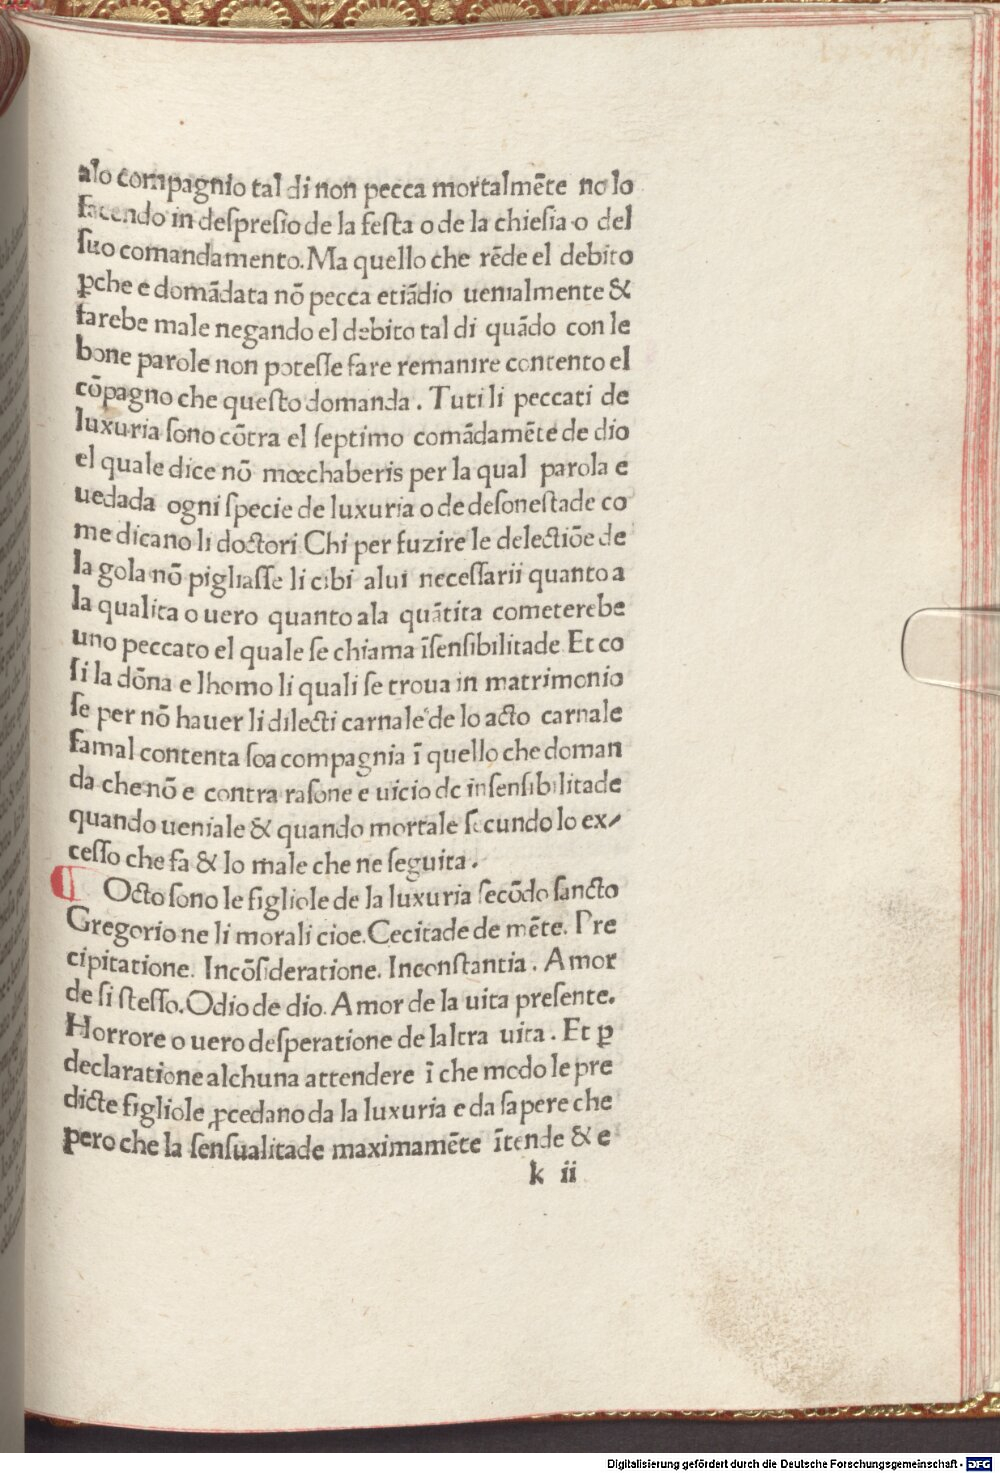 alo compagnio tal di non pecca mortalmēte no lo
facendo in deſpreſio de la feſta o de la chieſia o del
ſuo comandamento. Ma quello che rēde el debito
ꝑche e domādata nō pecca etiādio uenialmente &
farebe male negando el debito tal di quādo con le
bone parole non poteſſe fare remanire contento el
cōpagno che queſto domanda. Tuti li peccati de
luxuria ſono cōtra el ſeptimo comādamēte de dio
el quale dice nō mœchaberis per la qual parola e
uedada ogni ſpecie de luxuria o de deſoneſtade co
me dicano li doctori Chi per fuzire le delectiōe de
la gola nō pigliaſſe li cibi a lui neceſſarii quanto a
la qualita o uero quanto ala quātita cometerebe
uno peccato el quale ſe chiama īſenſibilitade Et co
ſi la dōna e lhomo li quali ſe troua in matrimonio
ſe per nō hauer li dilecti carnale de lo acto carnale
fa mal contenta ſoa compagnia ī quello che doman
da che nō e contra raſone e uicio de inſenſibilitade
quando ueniale & quando mortale ſecundo lo ex⸗
ceſſo che fa & lo male che ne ſeguita.
Octo ſono le figliole de la luxuria ſecōdo ſancto
Gregorio ne li morali cioe. Cecitade de mēte. Pre
cipitatione. Incōſideratione. Inconſtantia. Amor
de ſi ſteſſo. Odio de dio. Amor de la uita preſente.
Horrore o uero deſperatione de laltra uita. Et ꝑ
declaratione alchuna attendere ī che modo le pre
dicte figliole ꝓcedano da la luxuria e da ſapere che
pero che la ſenſualitade maximamēte ītende & e
k ii
Digitalisierung gefördert durch die Deutsche Forschungsgemeinschaft - DFG